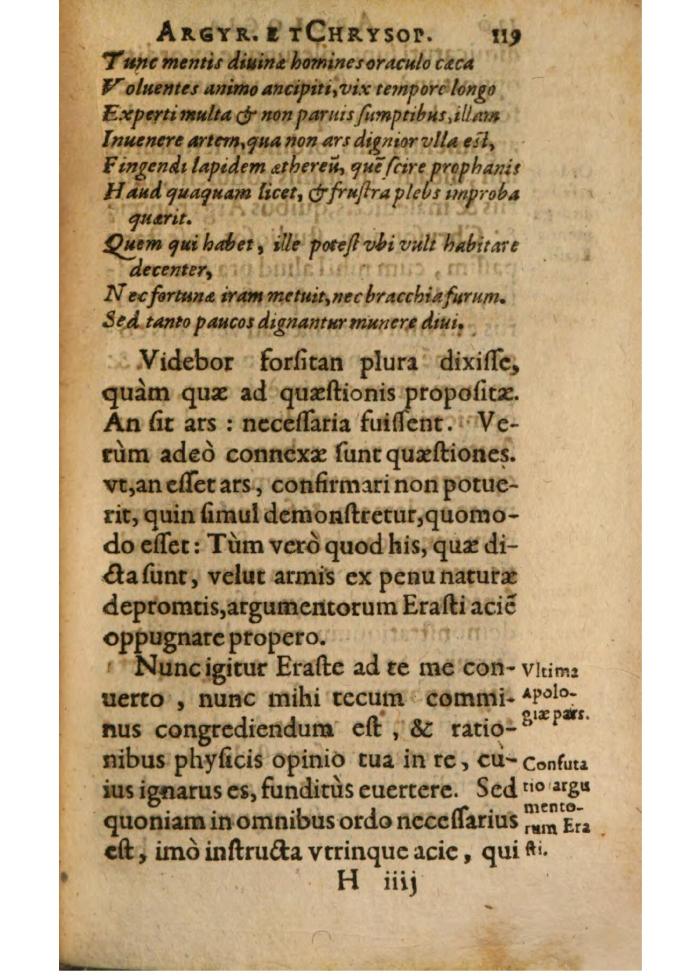 ARGYR. E TCHRYSOP. 119
Tunc mentis diuinæ homines oraculo cæca
Voluentes animo ancipiti, vix tempore longo
Experti multa & non paruis ſumptibus, illam
Inuenere artem, qua non ars dignior vlla eſt,
Fingendi lapidem æthereū, quē ſcire prophanis
Haud quaquam licet, & fruſtra plebs improba
quærit.
Quem qui habet, ille poteſt vbi vult habitare
decenter,
Nec fortunæ iram metuit, nec bracchia furum.
Sed tanto paucos dignantur munere diui.
Videbor forſitan plura dixiſſe,
quàm quæ ad quæſtionis propoſitæ.
An ſit ars : neceſſaria fuiſſent. Ve-
rùm adeò connexæ ſunt quæſtiones.
vt, an eſſet ars, confirmari non potue-
rit, quin ſimul demonſtretur, quomo-
do eſſet: Tùm verò quod his, quæ di-
cta ſunt, velut armis ex penu naturæ
depromtis, argumentorum Eraſti aciē
oppugnare propero.
Nunc igitur Eraſte ad te me con-
uerto, nunc mihi tecum commi-
nus congrediendum eſt, & ratio-
nibus phyſicis opinio tua in re, cu-
ius ignarus es, funditùs euertere. Sed
quoniam in omnibus ordo neceſſarius
eſt, imò inſtructa vtrinque acie, qui
Vltima
Apolo-
giæ pars.
Confuta
tio argu
mento-
rum Era
ſti.
H iiij